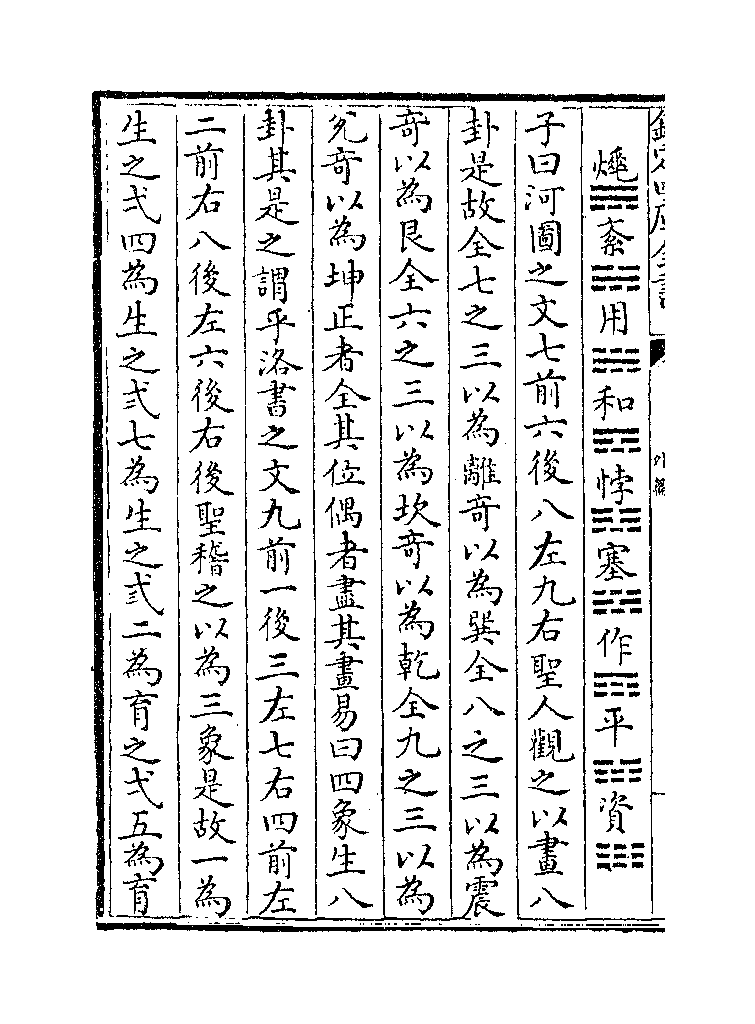 欽定四庫全書
紊 用 和 悖 塞 作 平 資
子曰河圖之文七前六後八左九右聖人觀之以畫八
卦是故全七之三以為離奇以為巽全八之三以為震
奇以為艮全六之三以為坎奇以為乾全九之三以為
兊奇以為坤正者全其位偶者盡其畫易曰四象生八
卦其是之謂乎洛書之文九前一後三左七右四前左
二前右八後左六後右後聖稽之以為三象是故一為
生之弌四為生之弍七為生之弎二為育之弌五為育